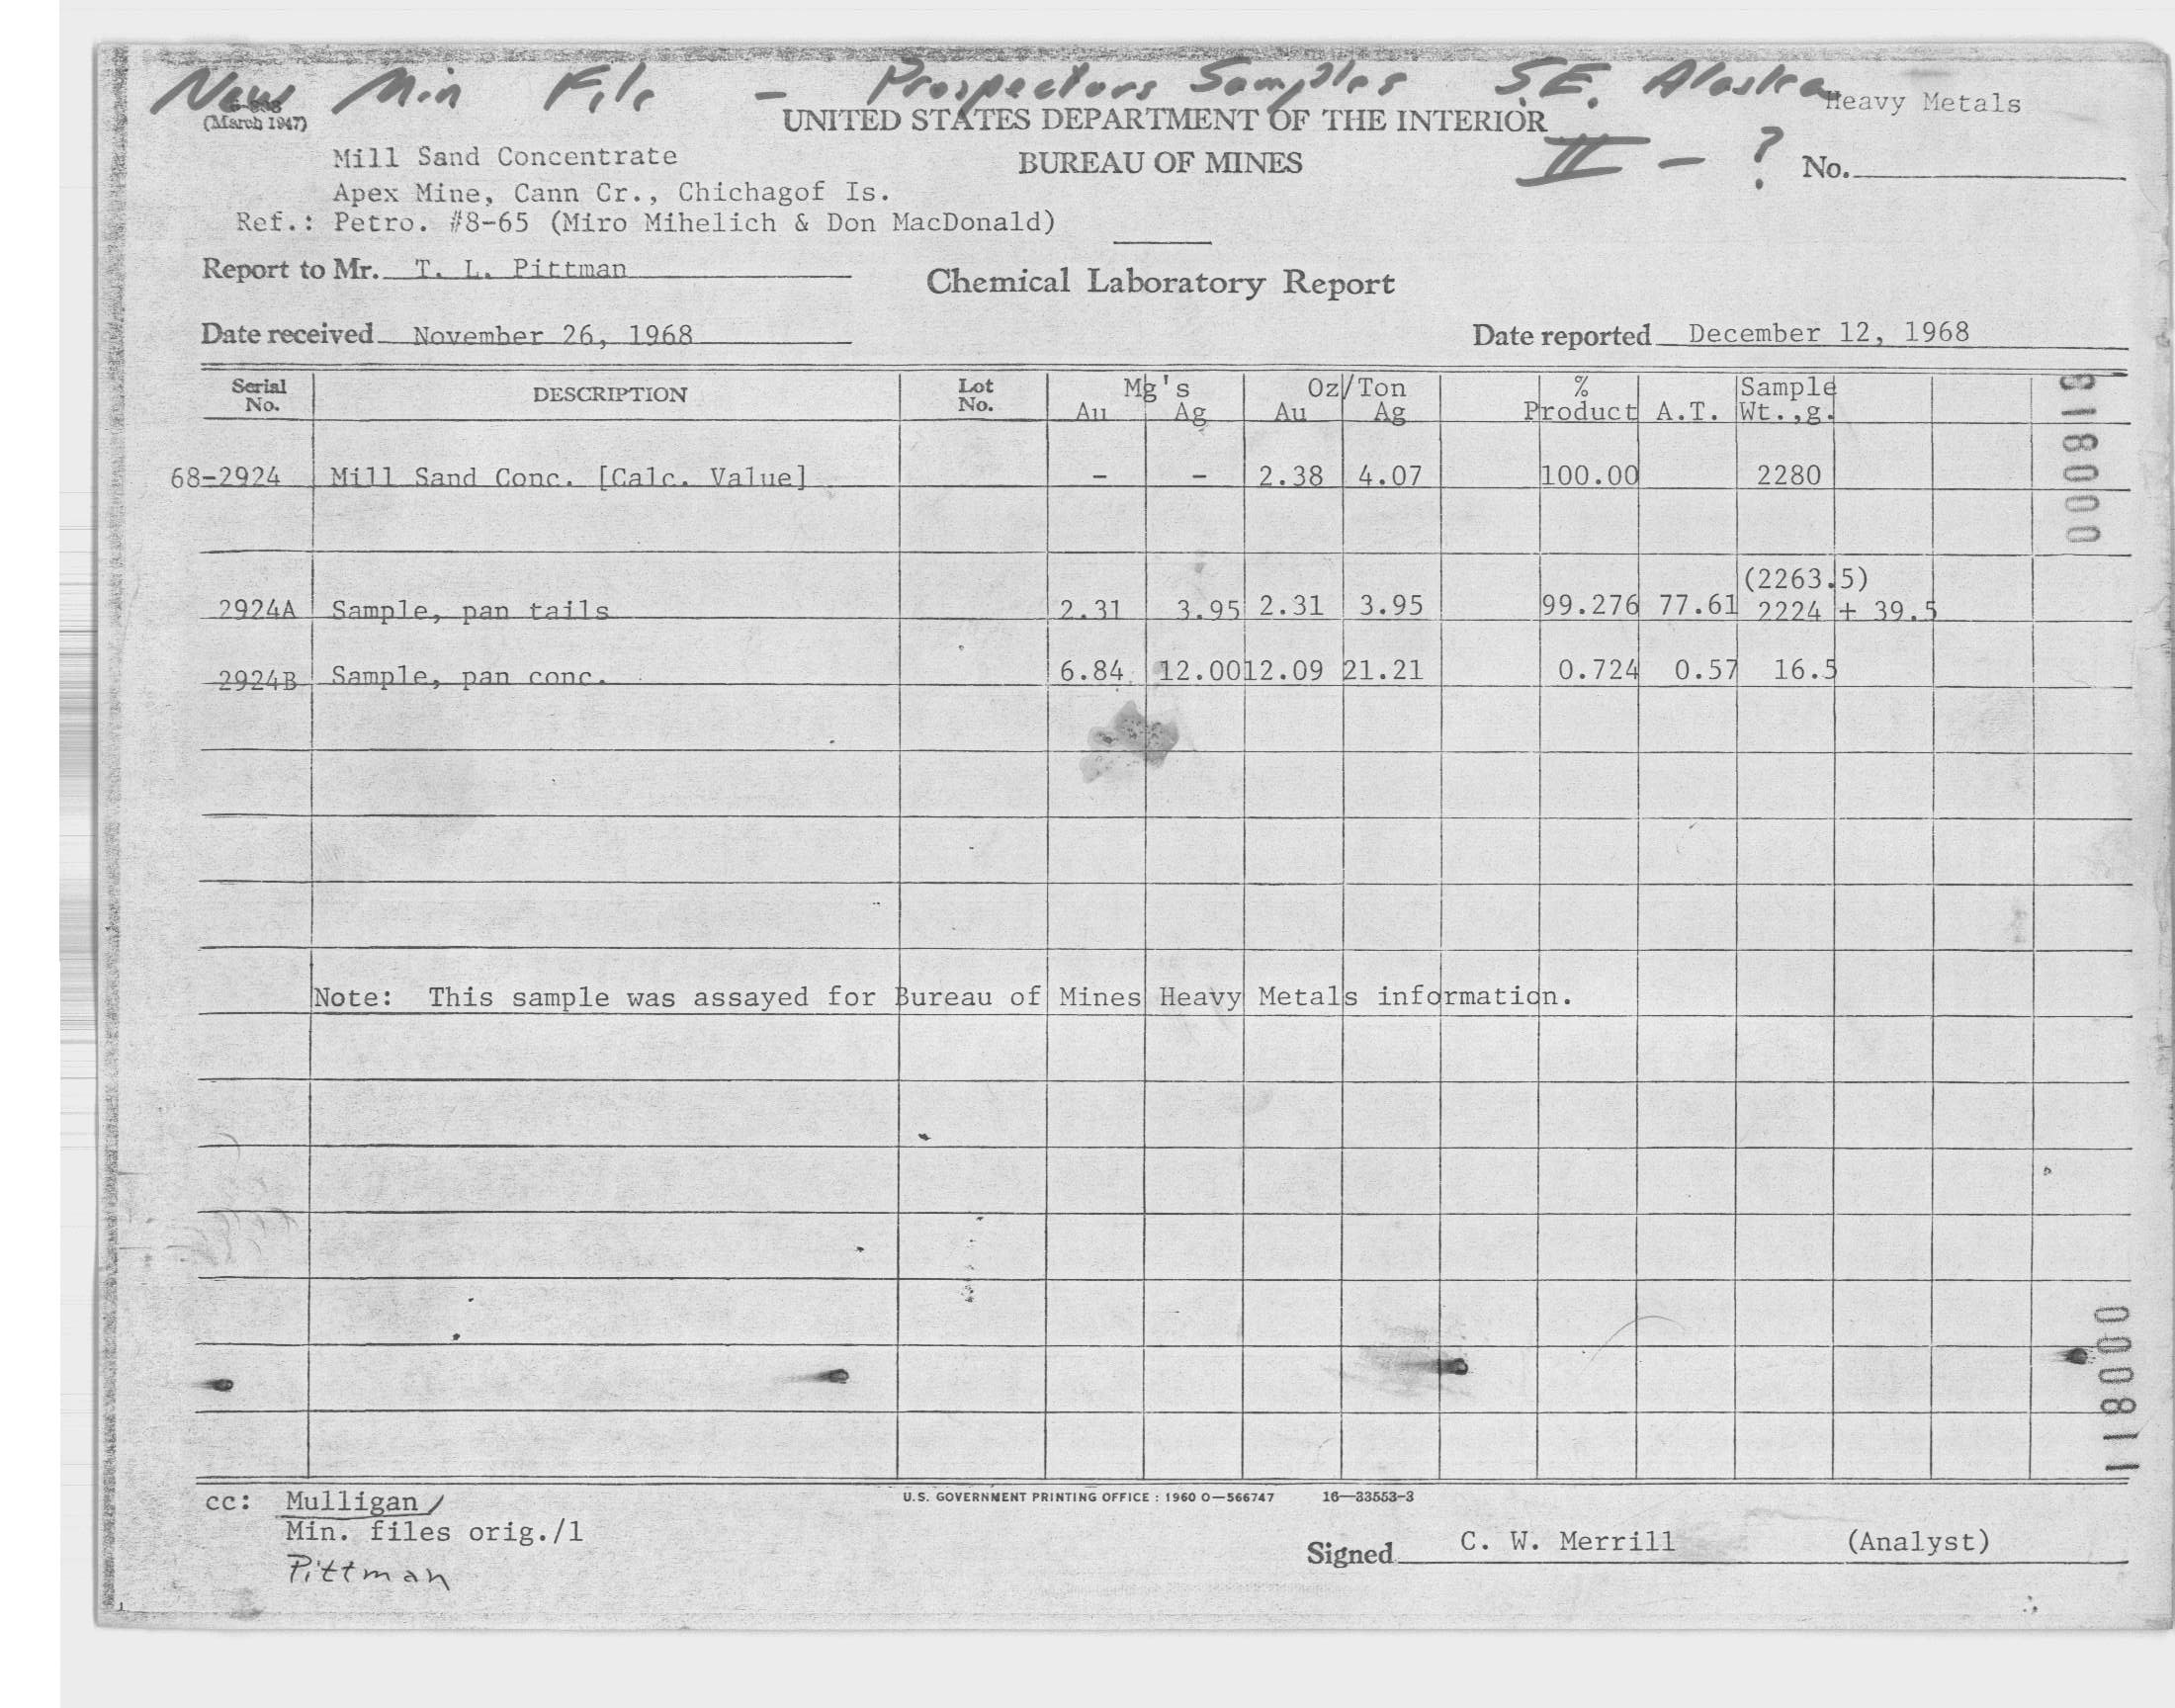 New Min File - Prospectors Samples S.E. Alaska
(March 1947)
Heavy Metals
UNITED STATES DEPARTMENT OF THE INTERIOR
Mill Sand Concentrate
BUREAU OF MINES
II - ?
No.
Apex Mine, Cann Cr., Chichagof Is.
Ref.: Petro. #8-65 (Miro Mihelich & Don MacDonald)
Report to Mr. T. L. Pittman
Chemical Laboratory Report
Date received November 26, 1968
Date reported December 12, 1968
Serial No. DESCRIPTION Lot No. Mg's Au Ag Oz/Ton Au Ag % Product A.T. Sample Wt.,g.
68-2924 Mill Sand Conc. [Calc. Value] - - 2.38 4.07 100.00 2280
(2263.5)
2924A Sample, pan tails 2.31 3.95 2.31 3.95 99.276 77.61 2224 + 39.5
2924B Sample, pan conc. 6.84 12.00 12.09 21.21 0.724 0.57 16.5
Note: This sample was assayed for Bureau of Mines Heavy Metals information.
000811
cc: Mulligan
Min. files orig./1
Pittman
U.S. GOVERNMENT PRINTING OFFICE : 1960 O—566747 16—33553-3
Signed C. W. Merrill (Analyst)